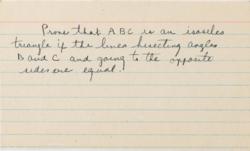 Prove that A B C is an isosceles
triangle if the lines bisecting angles
B and C and going to the opposite
sides are equal.